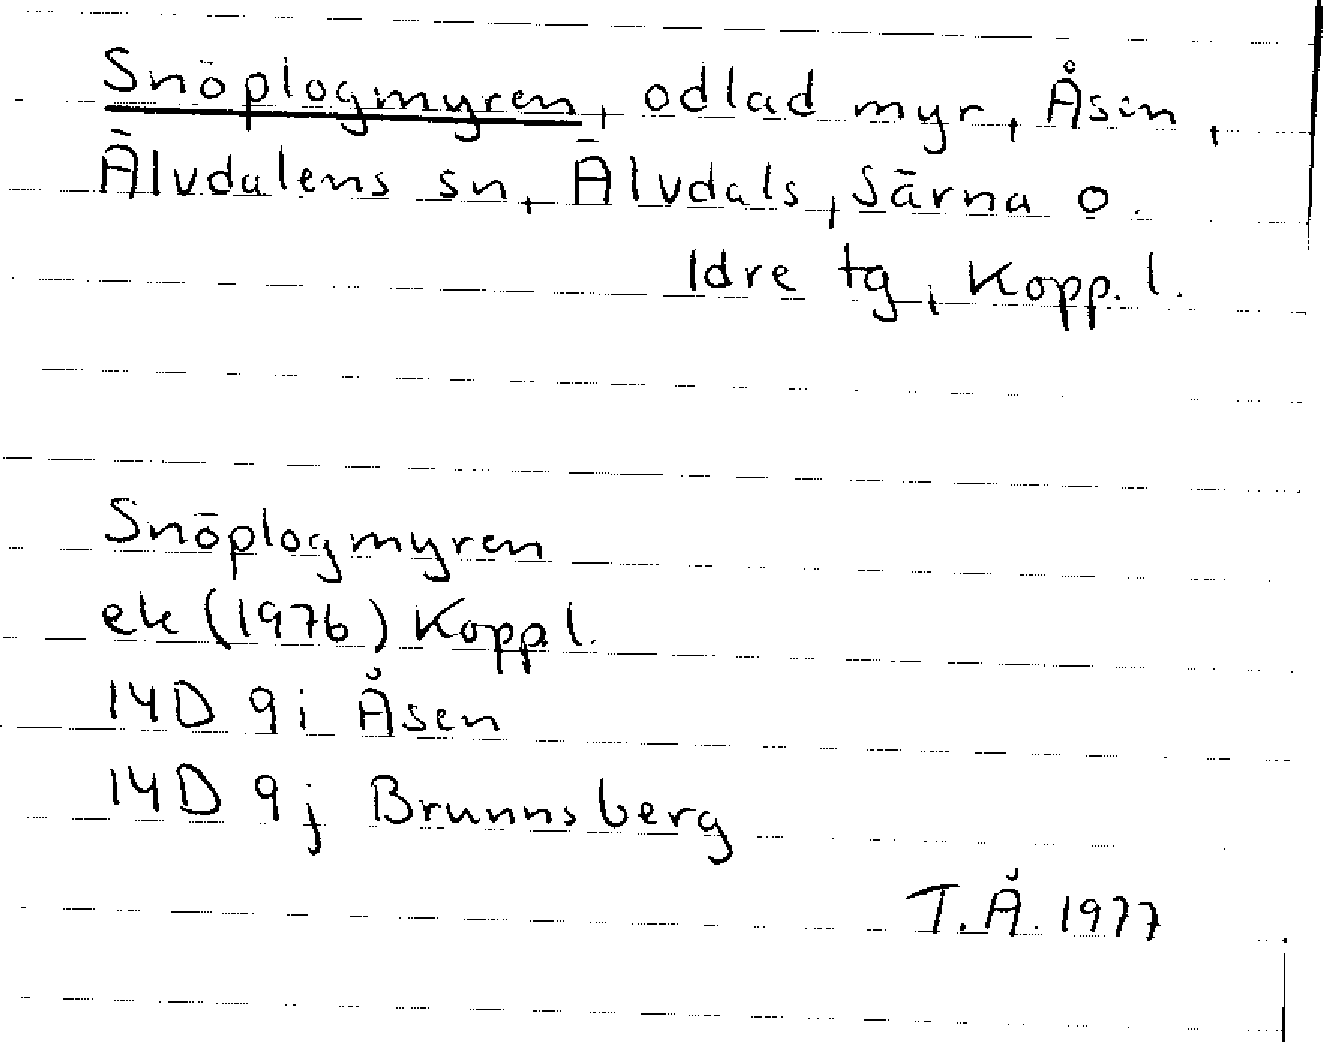 Snöplogmyren, odlad myr, Åsen,
Älvdalens sn, Älvdals, Särna o.
Idre tg, Kopp. l.
Snöplogmyren
ek (1976) Kopp. l.
14D 9i Åsen
14D 9j Brunnsberg
T.Å. 1977